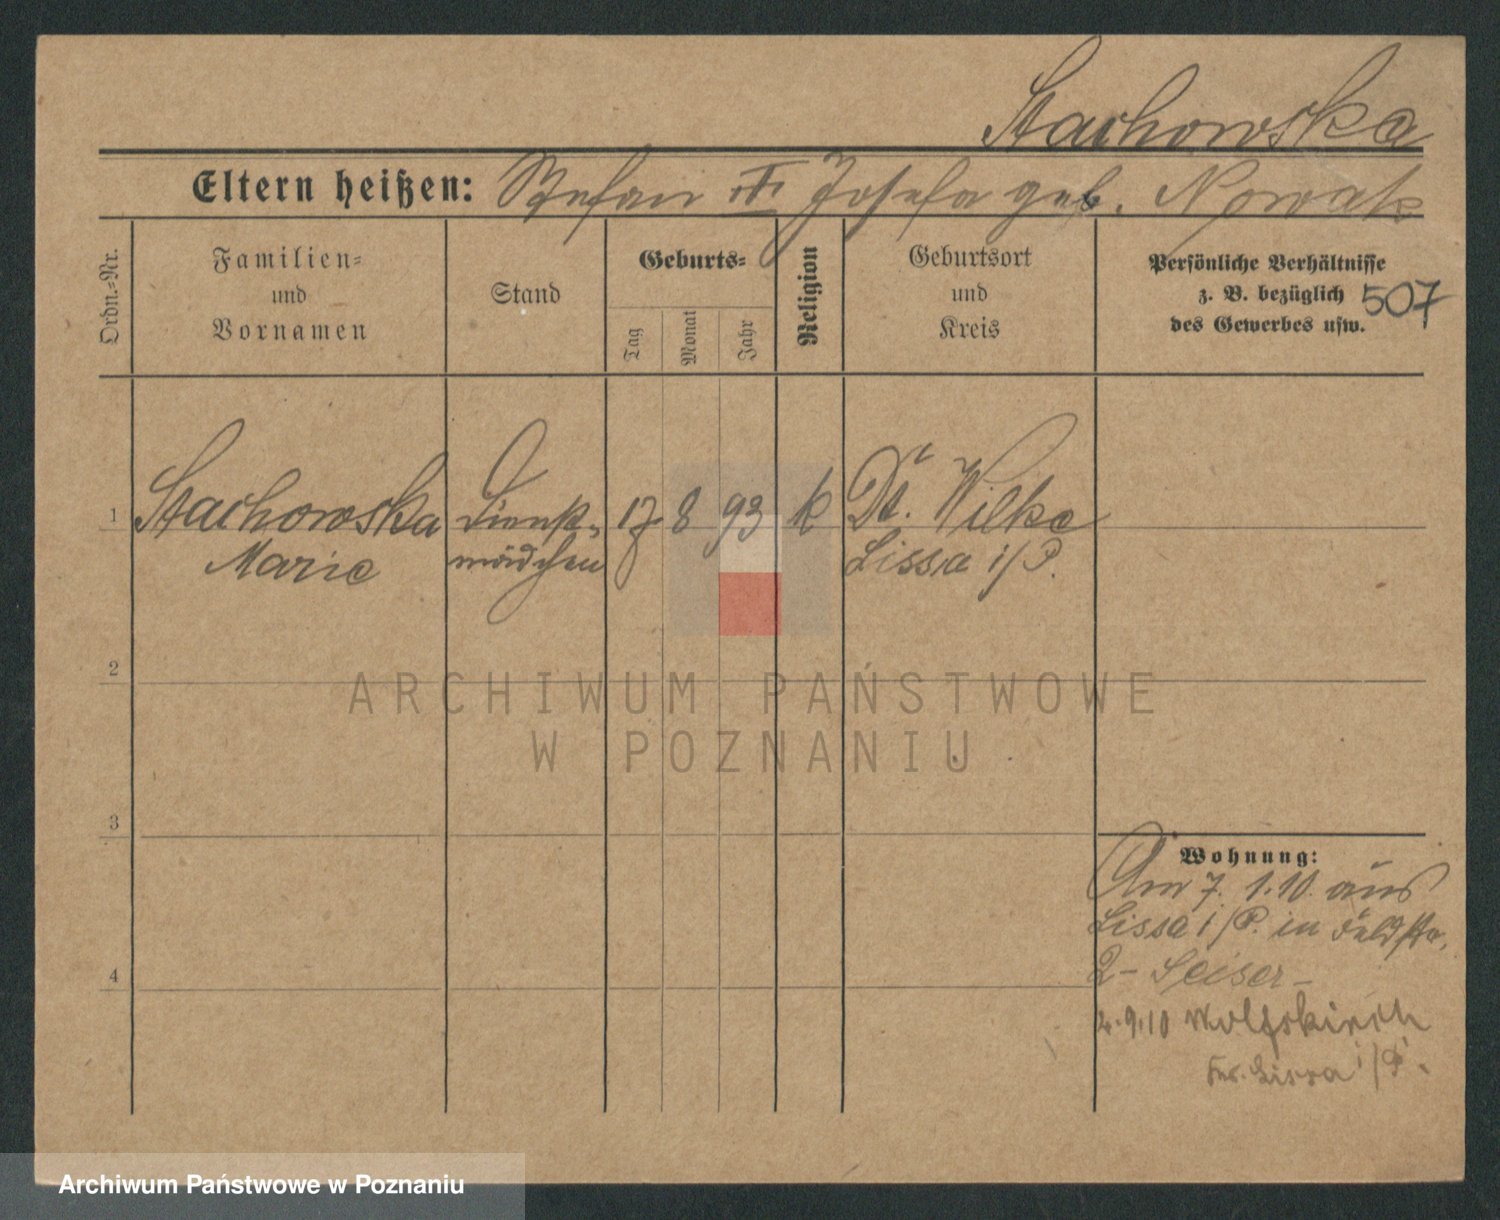 Stachowska
Eltern heißen: Stefan u. Josefa geb. Nowak
Ordn.-Nr.
Familien-
und
Vornamen
Stand
Geburts-
Tag
Monat
Jahr
Religion
Geburtsort
und
Kreis
Persönliche Verhältnisse
z. B. bezüglich
des Gewerbes usw.
507
1 Stachowska Dienst- 17 8 93 k Dt. Wilke
Marie mädchen Lissa i/P.
2
ARCHIWUM PAŃSTWOWE
W POZNANIU
3
Wohnung:
Am 7. 1. 10. aus
Lissa i/P. in Feldstr.
2 - Seiser -
4
2.9.10 Wolfskirch
Lissa i/P.
Archiwum Państwowe w Poznaniu